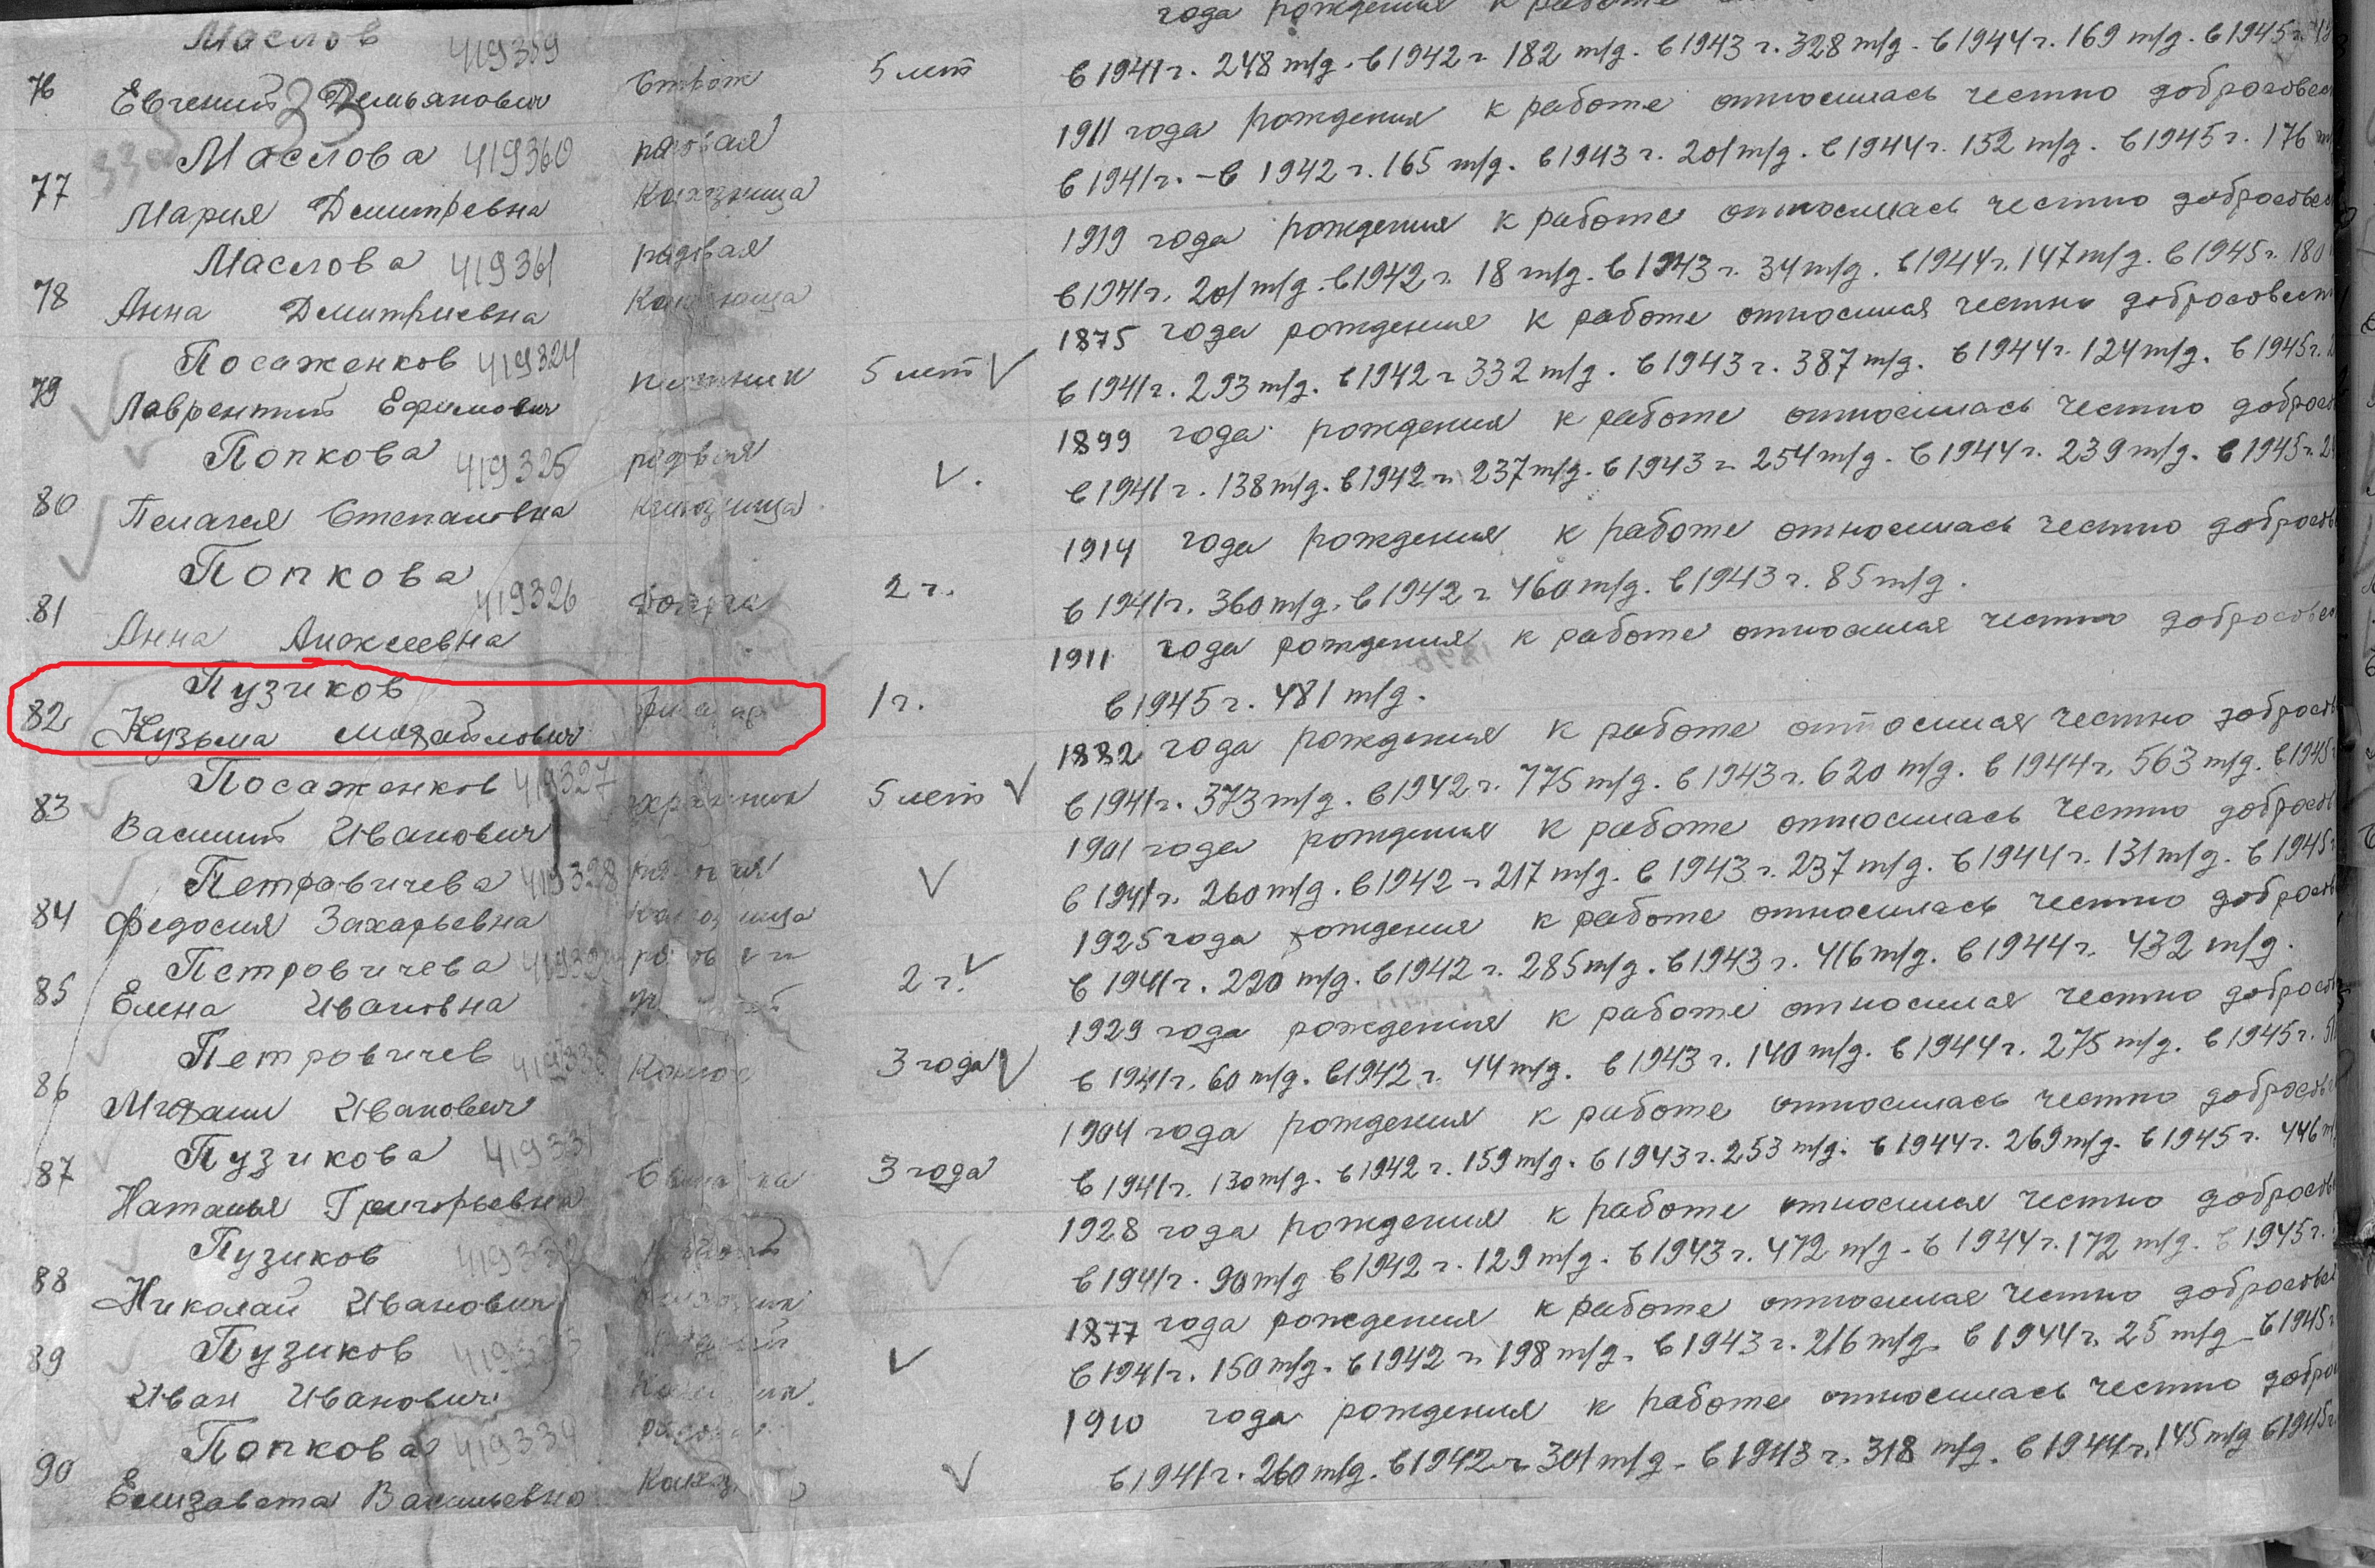 года рождения к работе
Маслов 419359
76 Евгений Демьянович Сторож 5 лет в 1941 г. 248 т/д. в 1942 г. 182 т/д. в 1943 г. 328 т/д. в 1944 г. 169 т/д. в 1945 г.
33
1911 года рождения к работе относилась честно
Маслова 419360 рядовая
77 Мария Дмитревна Колхозница в 1941 г. – в 1942 г. 165 т/д. в 1943 г. 201 т/д. в 1944 г. 152 т/д. в 1945 г. 176
1919 года рождения к работе относилась честно
Маслова 419361 рядовая
78 Анна Дмитриевна Колхозница в 1941 г. 201 т/д. в 1942 г. 18 т/д. в 1943 г. 34 т/д. в 1944 г. 147 т/д. в 1945 г. 180
1875 года рождения к работе относился честно
Посаженков 419324
79 Лаврентий Ефимович плотник 5 лет в 1941 г. 293 т/д. в 1942 г. 332 т/д. в 1943 г. 387 т/д. в 1944 г. 124 т/д. в 1945 г.
1899 года рождения к работе относилась честно
Попкова 419325 рядовая
80 Пелагея Степановна Колхозница в 1941 г. 138 т/д. в 1942 г. 237 т/д. в 1943 г. 254 т/д. в 1944 г. 239 т/д. в 1945 г.
1914 года рождения к работе относилась честно
Попкова 419326
81 Анна Алексеевна 2 г. в 1941 г. 360 т/д. в 1942 г. 460 т/д. в 1943 г. 85 т/д.
1911 года рождения к работе относился честно
Пузиков
82 Кузьма Михайлович 1 г. в 1945 г. 481 т/д.
1882 года рождения к работе относился честно
Посаженков 419327
83 Василий Иванович 5 лет в 1941 г. 373 т/д. в 1942 г. 775 т/д. в 1943 г. 620 т/д. в 1944 г. 563 т/д. в 1945
1901 года рождения к работе относилась честно
Петровичева 419328
84 Федосия Захарьевна Колхозница в 1941 г. 260 т/д. в 1942 г. 217 т/д. в 1943 г. 237 т/д. в 1944 г. 131 т/д. в 1945
1925 года рождения к работе относилась честно
Петровичева
85 Елена Ивановна 2 г. в 1941 г. 220 т/д. в 1942 г. 285 т/д. в 1943 г. 416 т/д. в 1944 г. 432 т/д.
1929 года рождения к работе относился честно
Петровичев
86 Михаил Иванович Конюх 3 года в 1941 г. 60 т/д. в 1942 г. 44 т/д. в 1943 г. 140 т/д. в 1944 г. 275 т/д. в 1945 г.
1904 года рождения к работе относилась честно
Пузикова 419331
87 Наталья Григорьевна 3 года в 1941 г. 130 т/д. в 1942 г. 159 т/д. в 1943 г. 253 т/д. в 1944 г. 269 т/д. в 1945 г. 446
1928 года рождения к работе относился честно
Пузиков 419332
88 Николай Иванович в 1941 г. 90 т/д в 1942 г. 129 т/д. в 1943 г. 472 т/д. в 1944 г. 172 т/д. в 1945 г.
1877 года рождения к работе относился честно
Пузиков
89 Иван Иванович в 1941 г. 150 т/д. в 1942 г. 198 т/д. в 1943 г. 216 т/д. в 1944 г. 25 т/д в 1945
1910 года рождения к работе относилась честно
Попкова 419334
90 Елизавета Васильевна в 1941 г. 260 т/д. в 1942 г. 301 т/д. в 1943 г. 318 т/д. в 1944 г. 145 т/д в 1945 г.